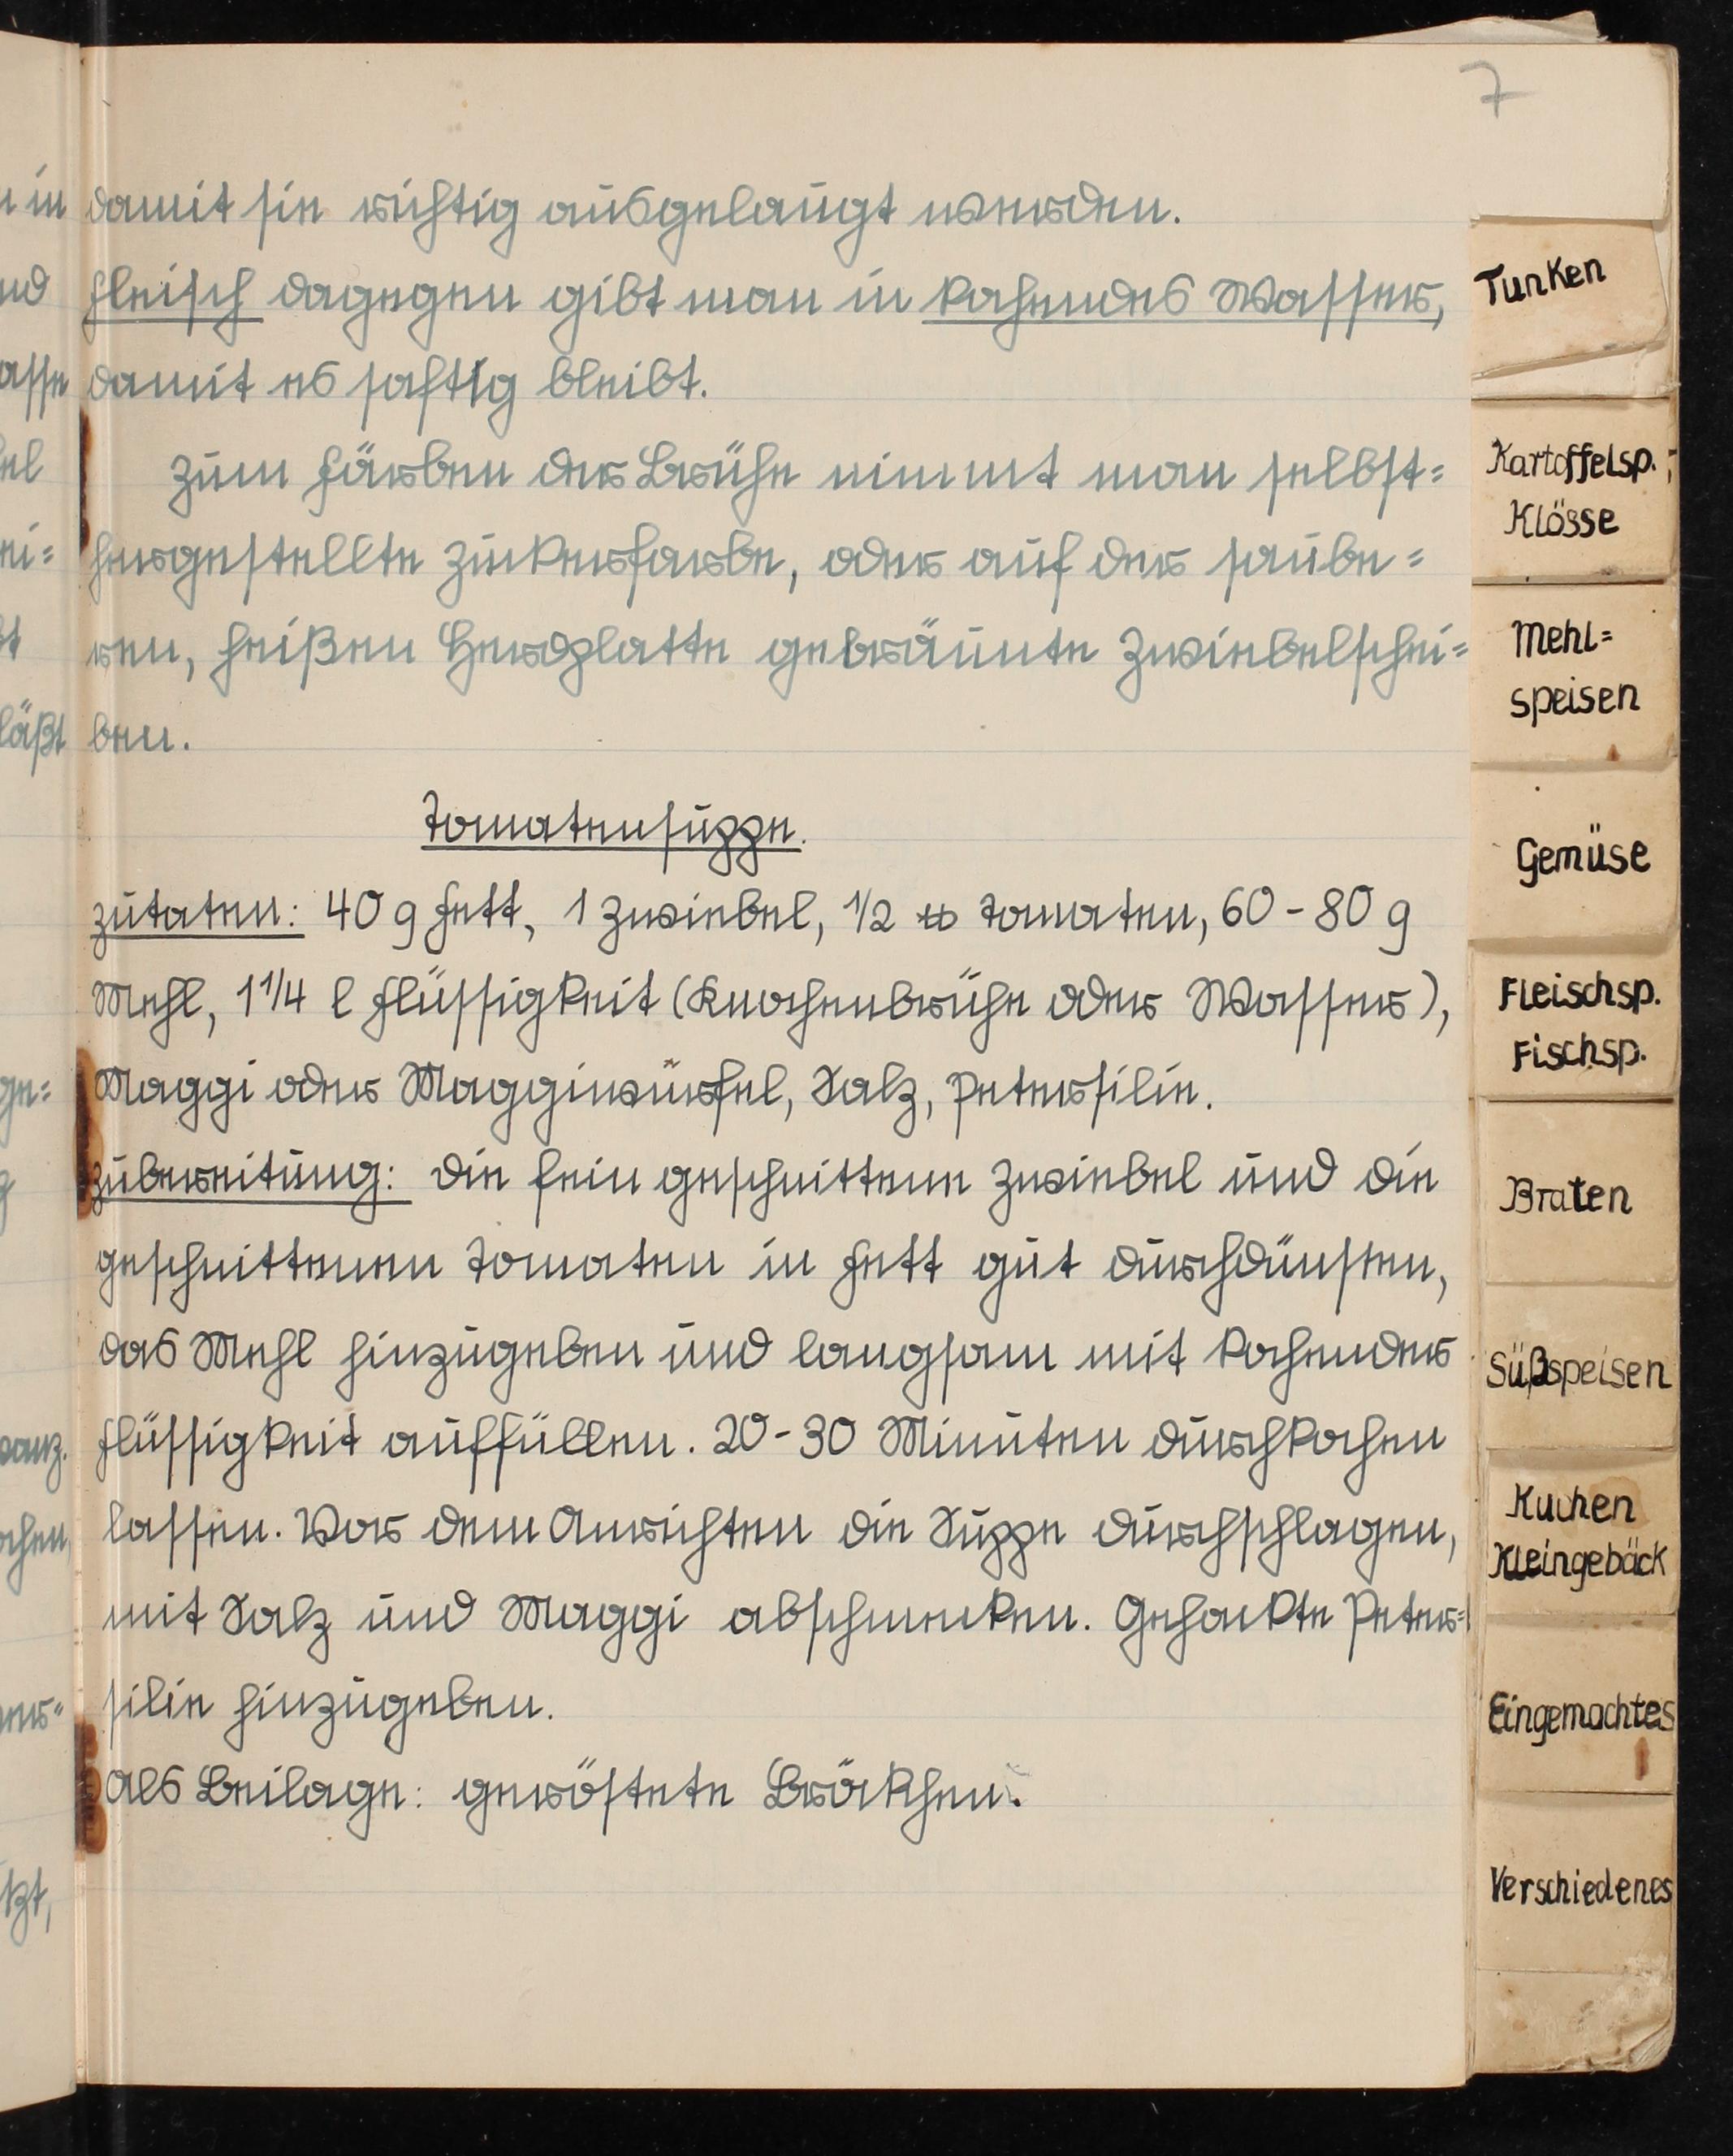 7
damit sie richtig ausgelaugt werden.
Fleisch dagegen gibt man in kochendes Wasser,
damit es saftig bleibt.
Zum Färben der Brühe nimmt man selbst=
hergestellte Zuckerfarbe, oder auf der saube=
ren, heißen Herdplatte gebräunte Zwiebelschei=
ben.
Tomatensuppe.
Zutaten: 40 g Fett, 1 Zwiebel, 1/2 ℔ Tomaten, 60 - 80 g
Mehl, 1 1/4 l Flüssigkeit (Knochenbrühe oder Wasser),
Maggi oder Maggiwürfel, Salz, Petersilie.
Zubereitung: Die fein geschnittene Zwiebel und die
geschnittenen Tomaten in Fett gut durchdünsten,
das Mehl hinzugeben und langsam mit kochender
Flüssigkeit auffüllen. 20 - 30 Minuten durchkochen
lassen. Vor dem Anrichten die Suppe durchschlagen,
mit Salz und Maggi abschmecken. Gehackte Peter=
silie hinzugeben.
Als Beilage: geröstete Bröckchen.
Tunken
Kartoffelsp.,
Klösse
Mehl=
speisen
Gemüse
Fleischsp.
Fischsp.
Braten
Süßspeisen
Kuchen
Kleingebäck
Eingemachtes
Verschiedenes